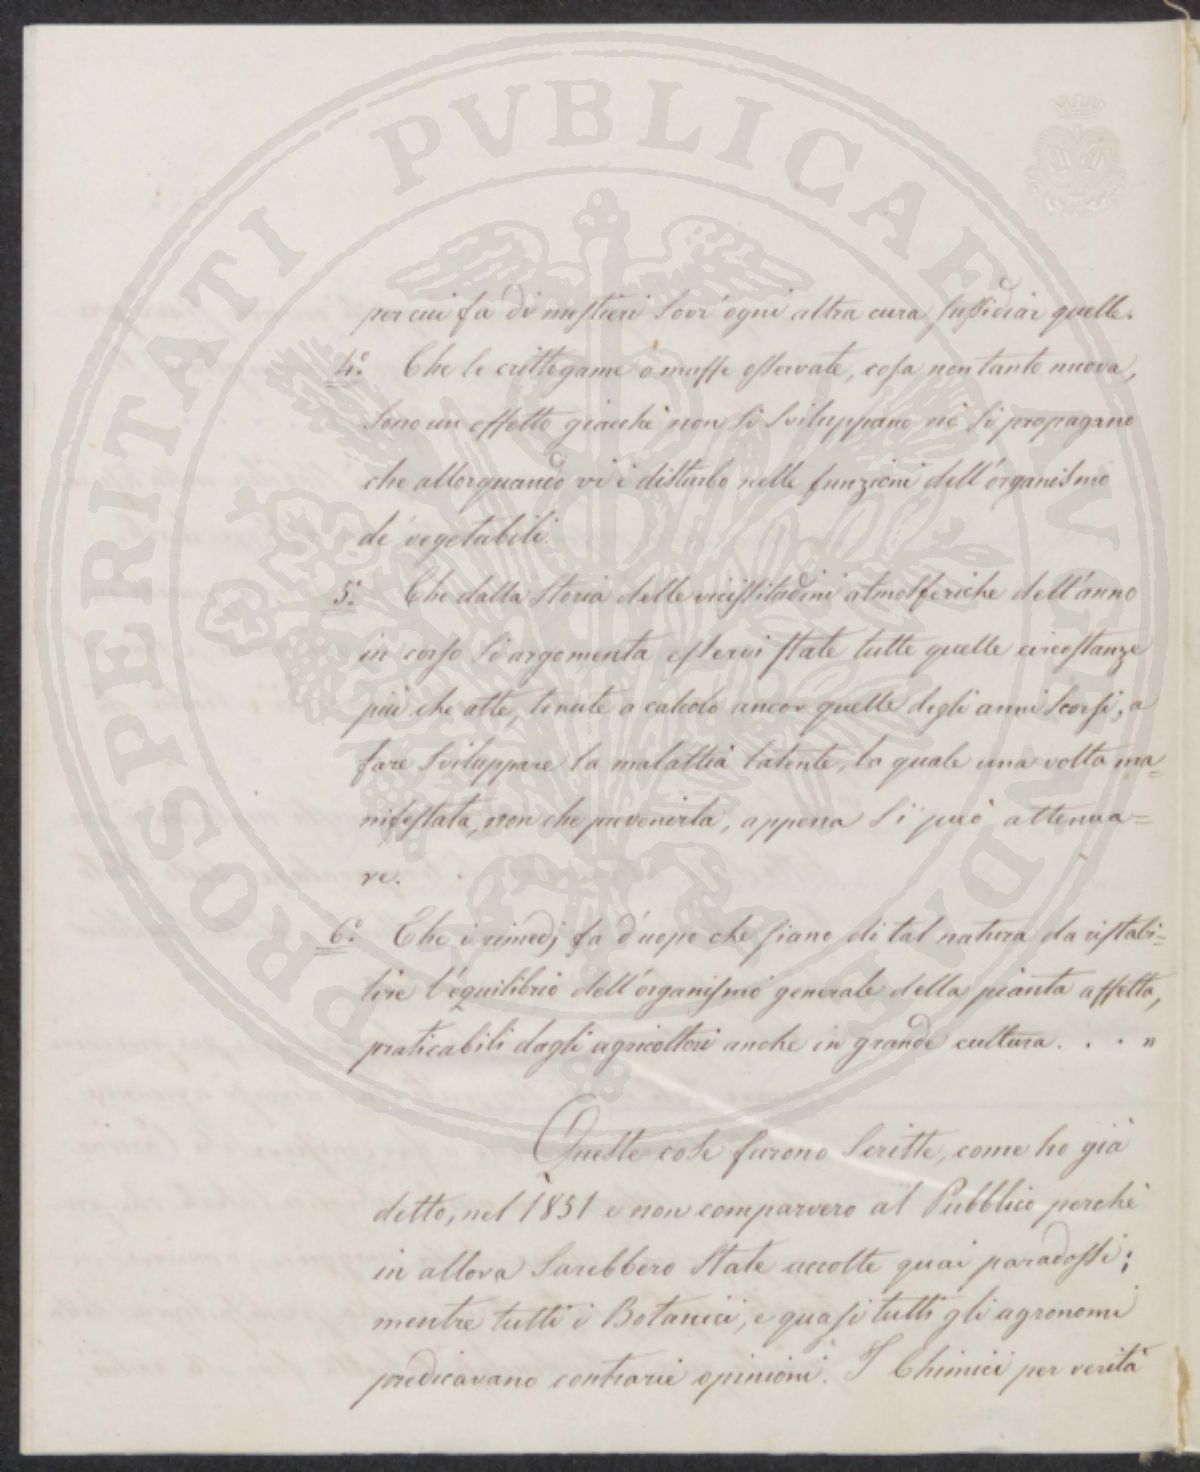 PROSPERITATI PVBLICAE AVGENDAE
per cui fa di mestieri sovr'ogni altra cura sussidiar quelle.
4.° Che le crittogame o muffe osservate, cosa non tanto nuova,
sono un effetto giacchè non si sviluppano nè si propagano
che allorquando vi è disturbo nelle funzioni dell'organismo
de' vegetabili.
5.° Che dalla storia delle vicissitudini atmosferiche dell'anno
in corso si argomenta esservi state tutte quelle circostanze
più che atte, tenute a calcolo ancor quelle degli anni scorsi, a
fare sviluppare la malattia latente, la quale una volta ma=
nifestata, non che prevenirla, appena si può attenua=
re.
6.° Che i rimedj fa d'uopo che siano di tal natura da ristabi=
lire l'equilibrio dell'organismo generale della pianta affetta,
praticabili dagli agricoltori anche in grande cultura. . . . "
Queste cose furono scritte, come ho già
detto, nel 1851 e non comparvero al Pubblico perchè
in allora sarebbero state accolte quai paradossi;
mentre tutti i Botanici, e quasi tutti gli agronomi
predicavano contrarie opinioni. I Chimici per verità